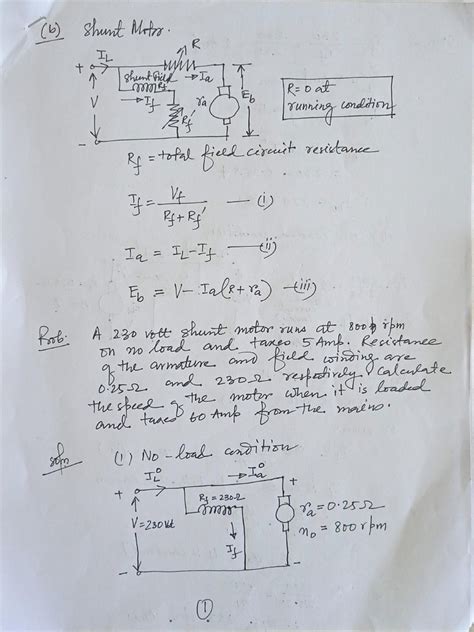 (b) Shunt Motor.
R
+ I_L Shunt field → I_a
R_f
V → I_f r_a E_b
R_f'
-
R = 0 at
running condition
R_f = total field circuit resistance
I_f = V_f / (R_f + R_f') — (i)
I_a = I_L - I_f — (ii)
E_b = V - I_a (R + r_a) — (iii)
Prob: A 230 volt shunt motor runs at 800 rpm
on no load and takes 5 Amp. Resistance
of the armature and field winding are
0.25Ω and 230Ω respectively. Calculate
the speed of the motor when it is loaded
and takes 60 Amp from the mains.
Soln (1) No-load condition
+ I_L⁰ → I_a⁰ +
R_f = 230Ω
V = 230 Vlt r_a = 0.25Ω
I_f n₀ = 800 rpm
- -
1